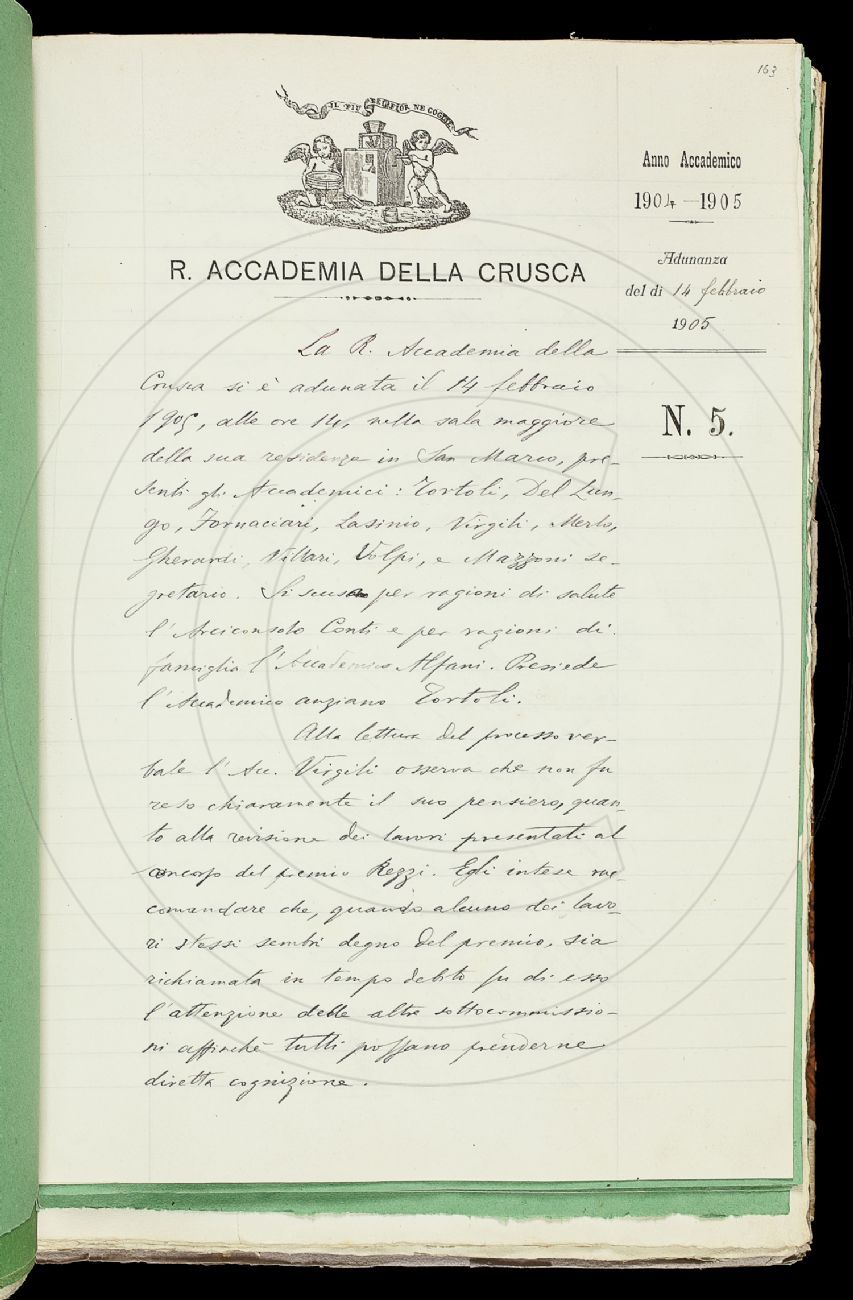 163
IL PIÙ BEL FIOR NE COGLIE
Anno Accademico
1904-1905
Adunanza
del dì 14 febbraio
1905
N. 5.
R. ACCADEMIA DELLA CRUSCA
La R. Accademia della
Crusca si è adunata il 14 febbraio
1905, alle ore 14, nella sala maggiore
della sua residenza in San Marco, pre-
senti gli Accademici: Tortoli, Del Lun-
go, Fornaciari, Lasinio, Virgili, Merlo,
Gherardi, Villari, Volpi, e Mazzoni se-
gretario. Si scusano per ragioni di salute
l'Arciconsolo Conti e per ragioni di
famiglia l'Accademico Alfani. Presiede
l'Accademico anziano Tortoli.
Alla lettura del processo ver-
bale l'Acc. Virgili osserva che non fu
reso chiaramente il suo pensiero, quan-
to alla revisione dei lavori presentati al
concorso del premio Rezzi. Egli intese rac-
comandare che, quando alcuno dei lavo-
ri stessi sembri degno del premio, sia
richiamata in tempo debito su di esso
l'attenzione delle altre sottocommissio-
ni affinché tutti possano prenderne
diretta cognizione.